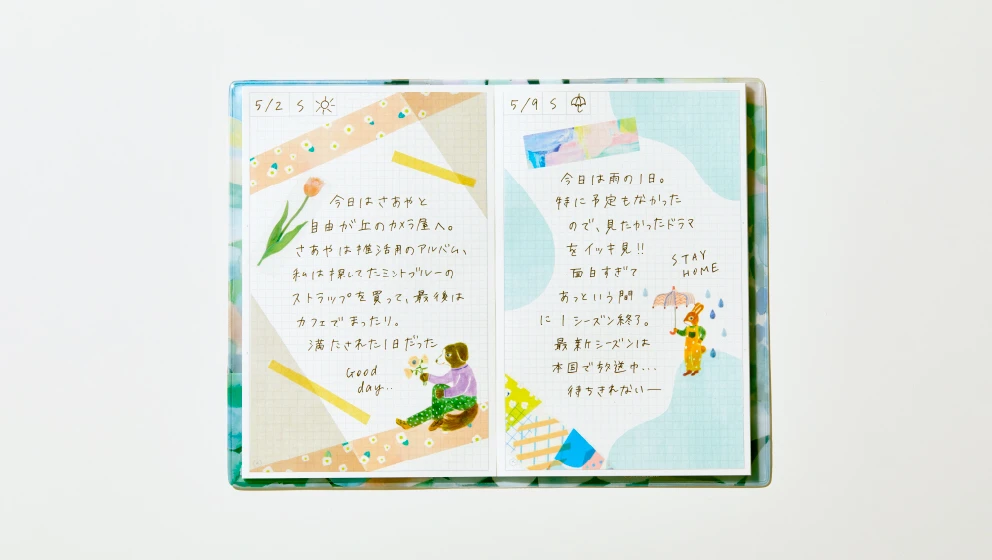 5/2 S
今日はさあやと
自由が丘のカメラ屋へ。
さあやは推活用のアルバム、
私は探してたミントブルーの
ストラップを買って、最後は
カフェでまったり。
満たされた1日だった
Good
day..
5/9 S
今日は雨の1日。
特に予定もなかった
ので、見たかったドラマ
をイッキ見!!
面白すぎて
あっという間
に1シーズン終了。
最新シーズンは
本国で放送中...
待ちきれないー
STAY
HOME